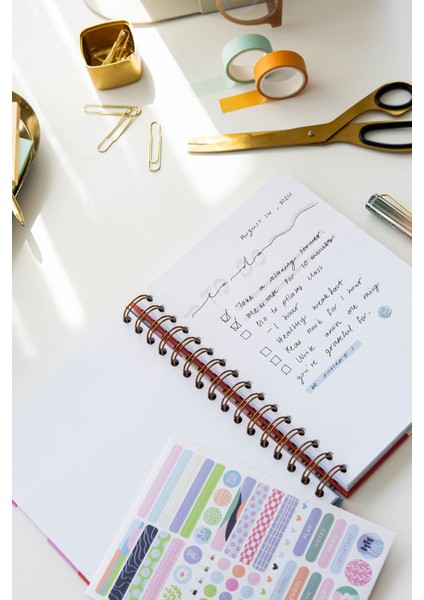 August 14, 2024
to do
TO DO
Take a relaxing shower
Meditate for 10 minutes
Go to pilates class
- 1 hour
Healthy breakfast
Read book for 1 hour
Write down one thing
you're grateful for.
be patient!
PLAN
NOTES